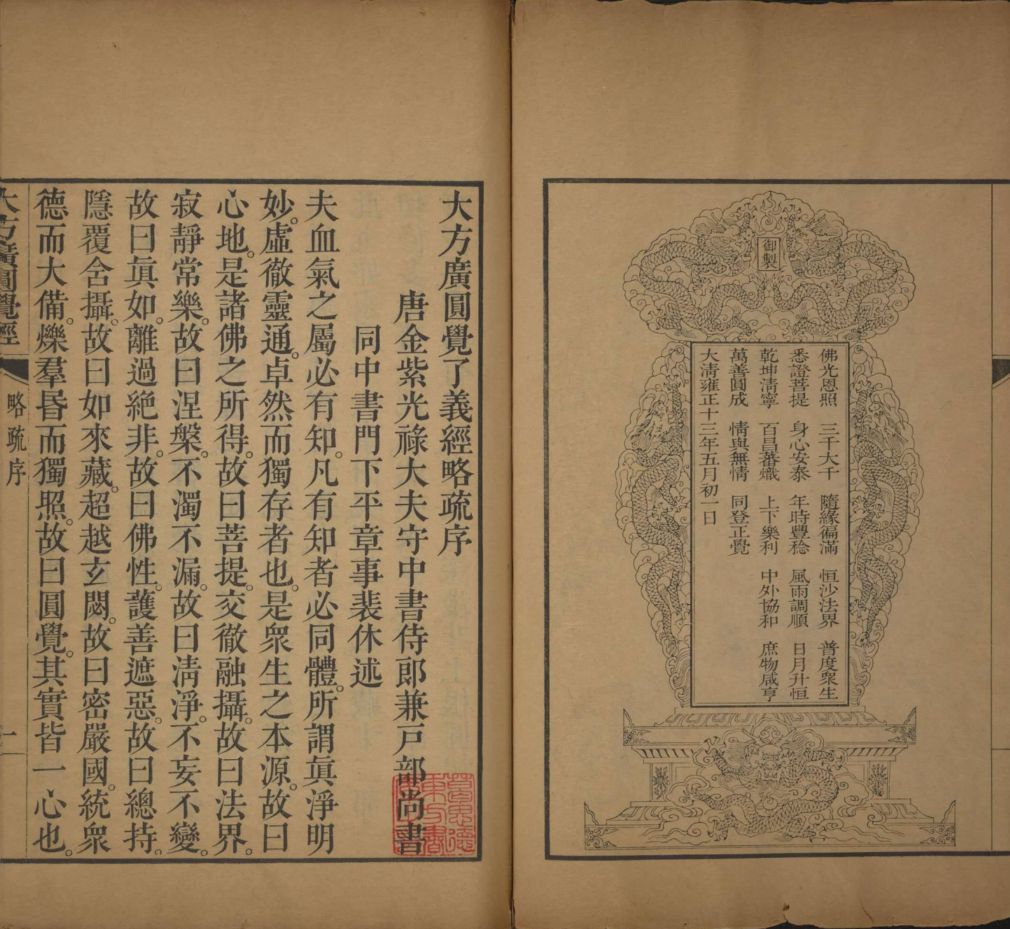 御製
佛光恩照　三千大千　隨緣徧滿　恒沙法界　普度衆生
悉證菩提　身心安泰　年時豐稔　風雨調順　日月升恒
乾坤清寧　百昌蕃熾　上下樂利　中外協和　庶物咸亨
萬善圓成　情與無情　同登正覺
大清雍正十三年五月初一日
大方廣圓覺了義經略疏序
唐金紫光祿大夫守中書侍郎兼戸部尚書
同中書門下平章事裴休述
夫血氣之屬必有知。凡有知者必同體。所謂眞淨明
妙。虛徹靈通。卓然而獨存者也。是衆生之本源。故曰
心地。是諸佛之所得。故曰菩提。交徹融攝。故曰法界。
寂靜常樂。故曰涅槃。不濁不漏。故曰淸淨。不妄不變。
故曰眞如。離過絕非。故曰佛性。護善遮惡。故曰總持。
隱覆含攝。故曰如來藏。超越玄閟。故曰密嚴國。統衆
德而大備。爍羣昏而獨照。故曰圓覺。其實皆一心也。
大方廣圓覺經
略疏序
一